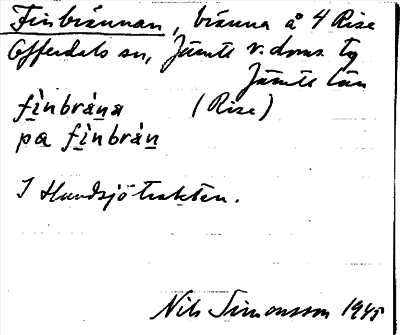 Finbrännan, bränna å 4 Rise
Offerdals sn, Jämte v. doms. tg
Jämte län
fìnbràna (Rise)
pa fìnbràn
I Hundsjötrakten.
Nils Simonsson 1945